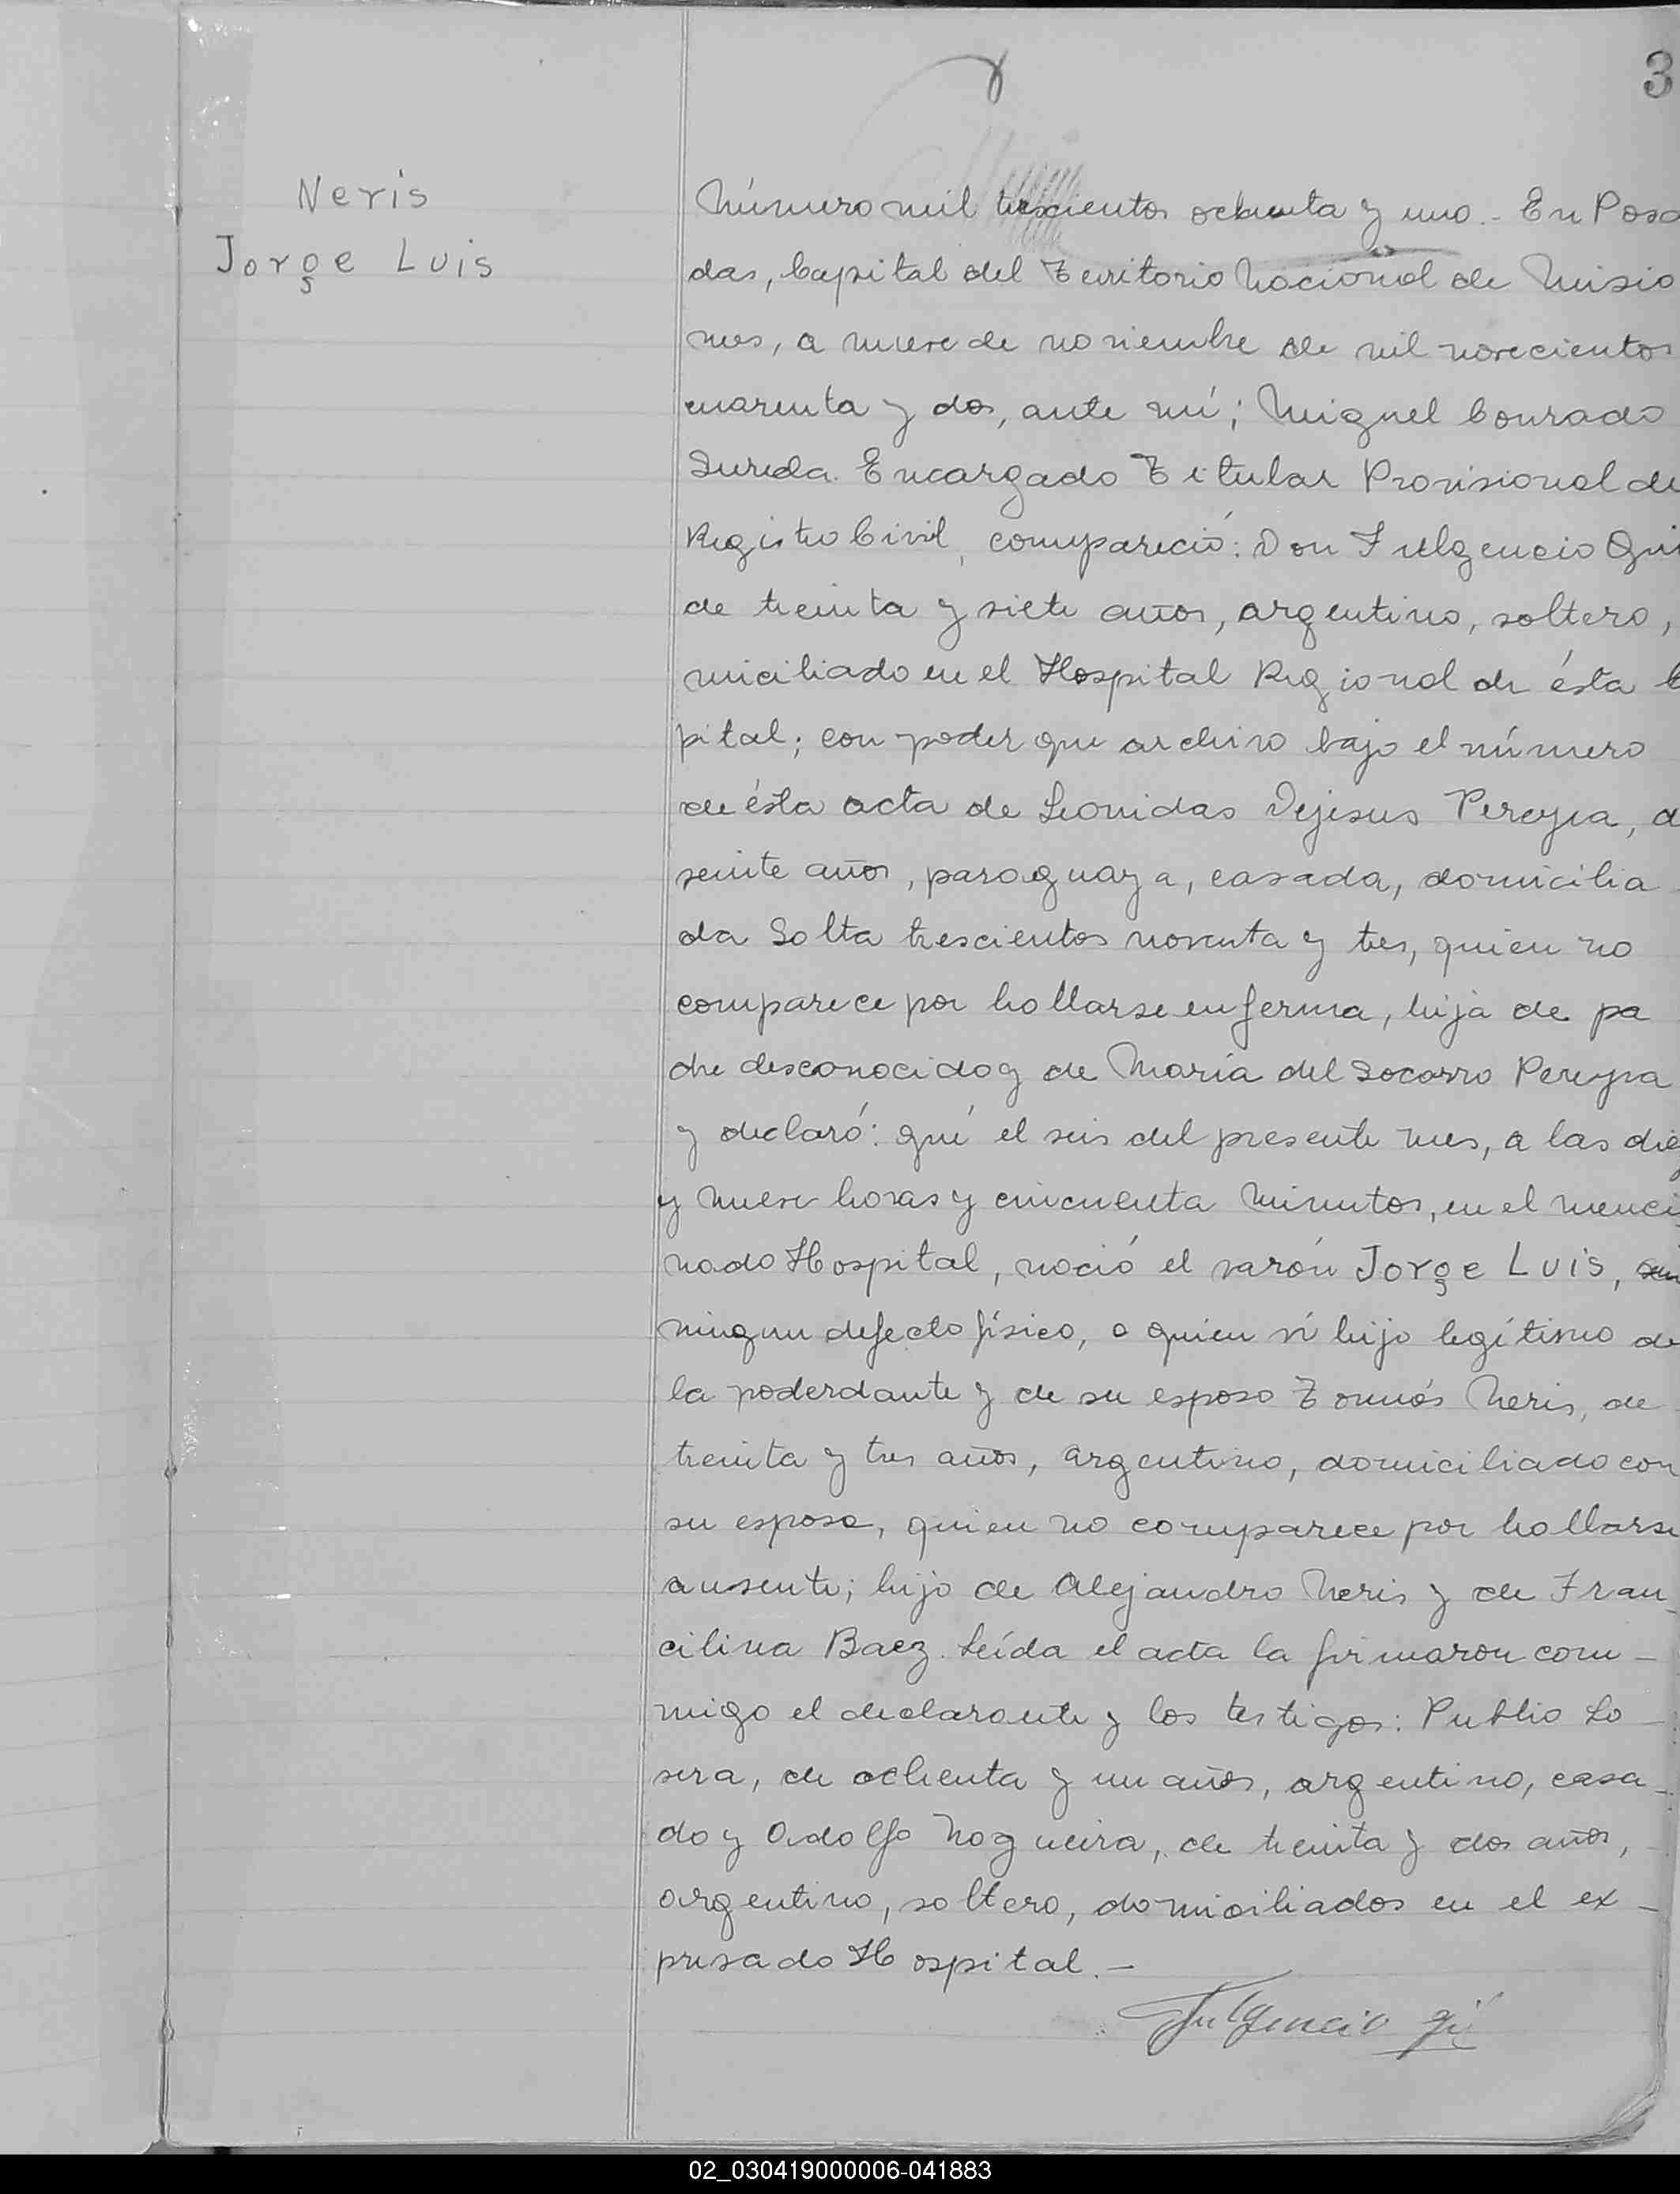 3
Neris
Jorge Luis
Número mil trescientos ochenta y uno.- En Posa
das, Capital del Territorio Nacional de Misio
nes, a nueve de noviembre de mil novecientos
cuarenta y dos, ante mí; Miguel Conrado
Sureda. Encargado Titular Provisional de
Registro Civil, compareció: Don Fulgencio
de treinta y siete años, argentino, soltero,
miciliado en el Hospital Regional de ésta C
pital; con poder que archivo bajo el número
de ésta acta de Leonidas Dejesus Pereyra, d
veinte años, paraguaya, casada, domicilia
da Salta trescientos noventa y tres, quien no
comparece por hallarse enferma, hija de pa
dre desconocido y de María del Socorro Pereyra
y declaró: qué el seis del presente mes, a las diez
y nueve horas y cincuenta minutos, en el menci
nado Hospital, nació el varón Jorge Luis, sin
ningun defecto físico, a quien ví hijo legítimo de
la poderdante y de su esposo Tomás Neris, de
treinta y tres años, argentino, domiciliado con
su esposa, quien no comparece por hallarse
ausente; hijo de Alejandro Neris y de Fran-
cilina Baez. Leída el acta la firmaron con-
migo el declarante y los testigos: Publio Lo-
sera, de ochenta y un años, argentino, casa-
do y Adolfo Nogueira, de treinta y dos años,
argentino, soltero, domiciliados en el ex-
presado Hospital.-
Fulgencio
02_030419000006-041883